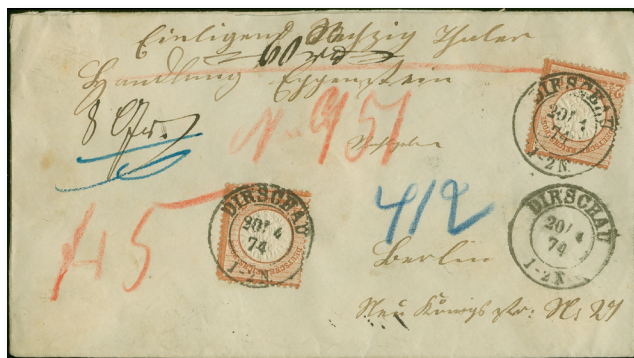 Einliegend Sechzig Thaler
60 rt
Handlung Eggenstein
8 Gr.
N. 951
412
45
DIRSCHAU
20/4
74
1-2 N.
DIRSCHAU
20/4
74
1-2 N
DIRSCHAU
20/4
74
1-2 N
Berlin
Neu Königs str: No 27